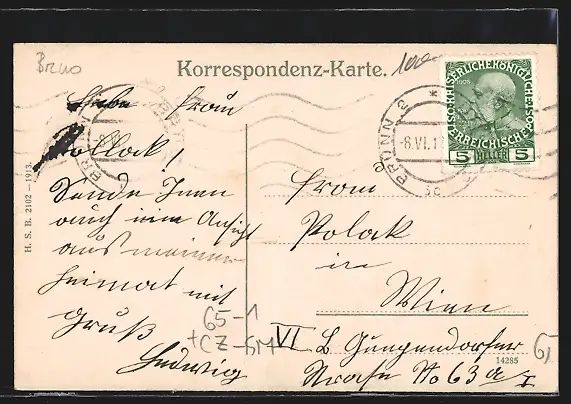 Brno
Korrespondenz-Karte.
100
K.K. ÖSTERREICHISCHE POST
1908
5 HELLER 5
BRÜNN 2 *
-8.VI.1
5c
Liebe Frau
Pollack!
Sende Ihnen
auch eine Ansicht
aus meiner
Heimat mit
Gruß
Hedwig
H. S. B. 2102 - 1913.
65-1
+CZ-SM
Frau
Polak
in
Wien
VI Gumpendorfer
14285
Strasse No 63a I
65